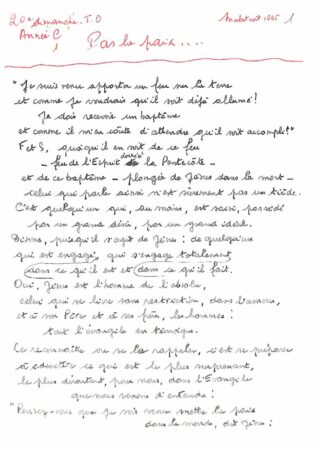 20e dimanche T.O
Année C
1
Pas la paix....
"Je suis venu apporter un feu sur la terre
et comme je voudrais qu'il soit déjà allumé!
Je dois recevoir un baptême
et comme il m'en coûte d'attendre qu'il soit accompli!"
F et S, quoiqu'il en soit de ce feu
- feu de l'Esprit la Pentecôte -
et de ce baptême - plongée de Jésus dans la mort -
celui qui parle ainsi n'est sûrement pas un tiède.
C'est quelqu'un qui, au moins, est saisi, possédé
par un grand désir, par un grand idéal.
Disons, puisqu'il s'agit de Jésus : de quelqu'un
qui est engagé, qui s'engage totalement
dans ce qu'il est et dans ce qu'il fait.
Oui, Jésus est l'homme de l'absolu,
celui qui se livre sans restriction, dans l'amour,
et à son Père et à ses frères, les hommes :
tout l'évangile en témoigne.
Le reconnaître ou se le rappeler, c'est se préparer
à admettre ce qui est le plus surprenant,
le plus déroutant, pour nous, dans l'Evangile
que nous venons d'entendre :
"Pensez-vous que je sois venu mettre la paix
dans le monde, dit Jésus :